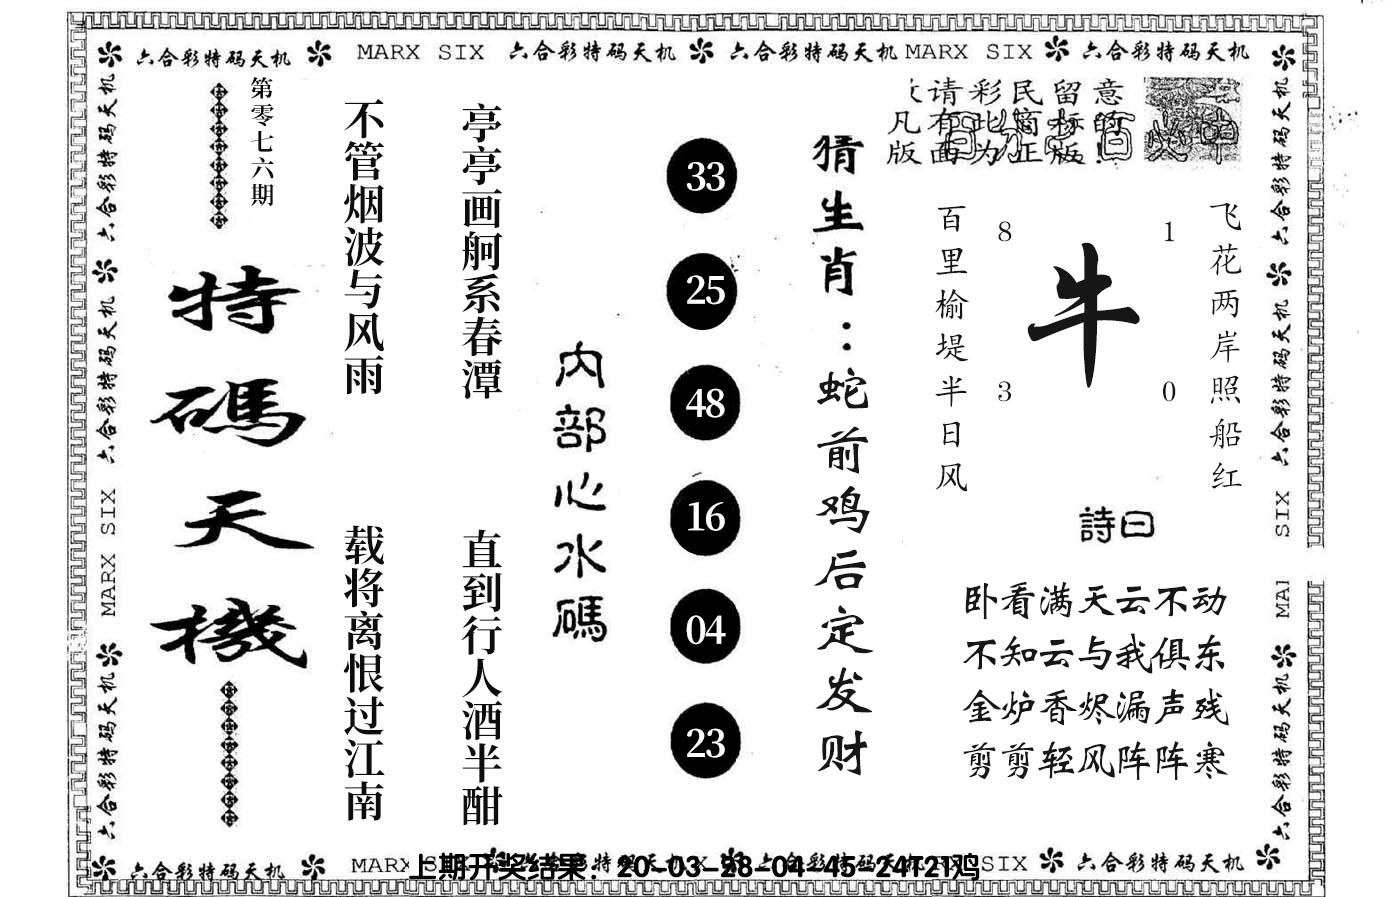 六合彩特码天机 MARX SIX 六合彩特码天机 六合彩特码天机 MARX SIX 六合彩特码天机
六合彩特码天机
六合彩特码天机
MARX SIX
六合彩特码天机
第零七六期
特碼天機
不管烟波与风雨
载将离恨过江南
亭亭画舸系春潭
直到行人酒半酣
内部心水碼
33
25
48
16
04
23
猜生肖：蛇前鸡后定发财
请彩民留意
凡有此商标的
版面为正版!
飞花两岸照船红
百里榆堤半日风
8
1
牛
3
0
詩曰
卧看满天云不动
不知云与我俱东
金炉香烬漏声残
剪剪轻风阵阵寒
六合彩特码天机
六合彩特码天机
SIX
MAR
六合彩特码天机
六合彩特码天机 MARX SIX 六合彩特码天机
上期开奖结果：20-03-28-04-45-24T21鸡